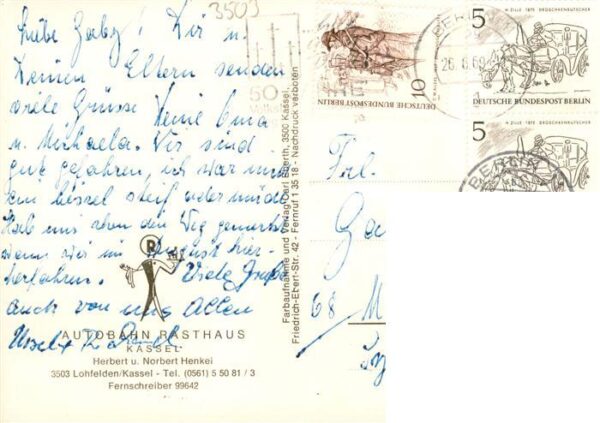 3503
Liebe Gaby! Dir u.
Deinen Eltern senden
viele Grüsse Deine Oma
u. Michaela. Wir sind
gut gefahren, ich war nur
ein bissel steif oder müde
Hab uns schon den Weg gemerkt
wenn wir im August hier-
herfahren. Viele Grüße
auch von uns Allen
R
AUTOBAHN RASTHAUS
KASSEL
Herbert u. Norbert Henkel
3503 Lohfelden/Kassel - Tel. (0561) 5 50 81 / 3
Fernschreiber 99642
Farbaufnahme und Verlag Carl Eberth, 3500 Kassel,
Friedrich-Ebert-Str. 42 - Fernruf 1 35 18 - Nachdruck verboten
50
10
DEUTSCHE BUNDESPOST BERLIN
BERLIN
26.8.69
5
H. ZILLE 1875 DROSCHKENKUTSCHER
DEUTSCHE BUNDESPOST BERLIN
5
H. ZILLE 1875 DROSCHKENKUTSCHER
BERLIN
Frl.
Ga
68 M